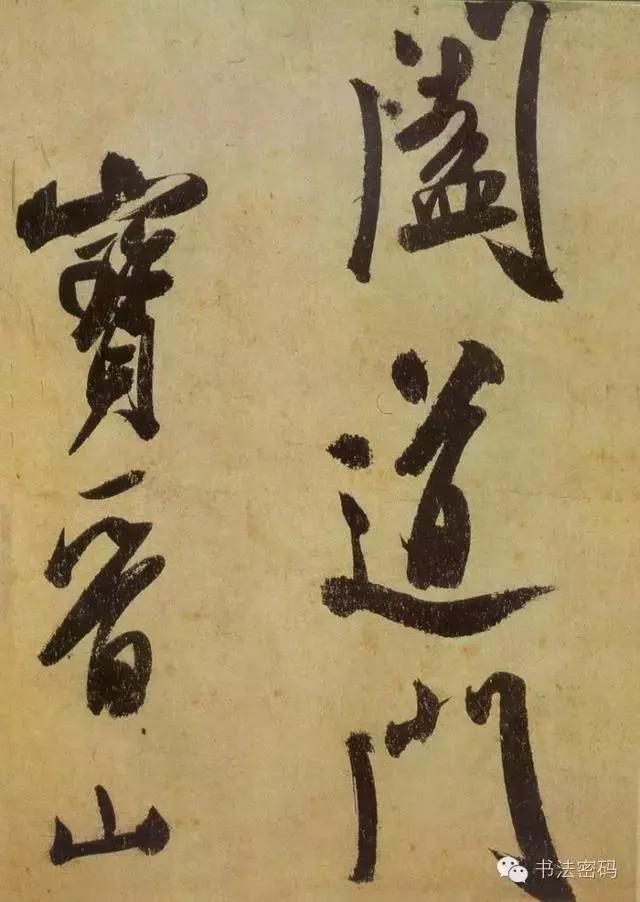 闔道門
寶晉山
书法密码